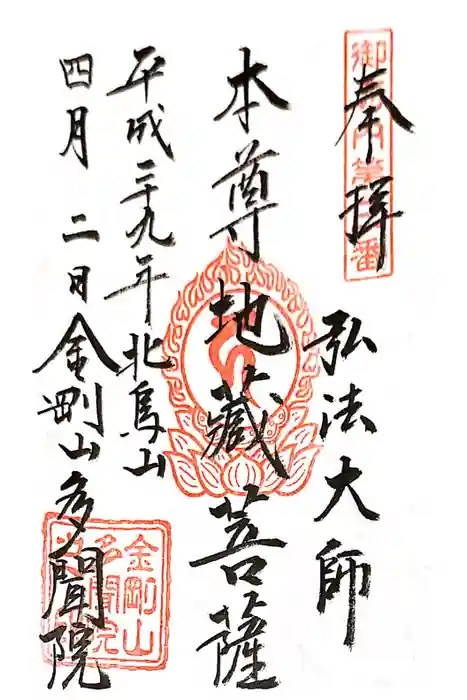 奉拝
弘法大師
本尊地蔵菩薩
平成二十九年 北烏山
四月二日 金剛山多聞院
金剛山
多聞院